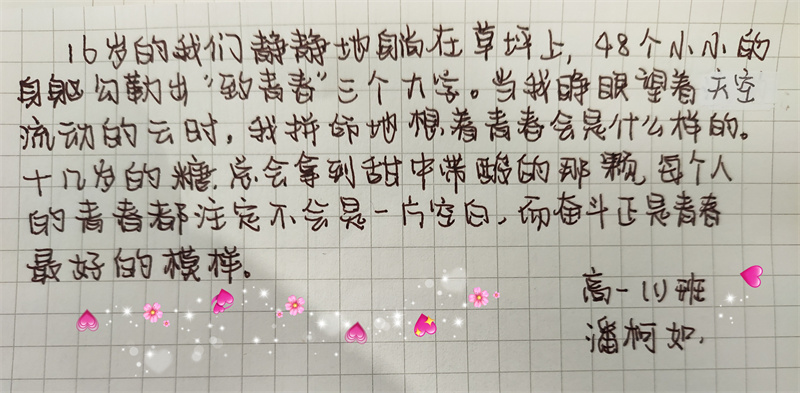 16岁的我们静静地躺在草坪上，48个小小的
身躯勾勒出“致青春”三个大字。当我睁眼望着天空
流动的云时，我拼命地想着青春会是什么样的。
十几岁的糖，总会拿到甜中带酸的那颗，每个人
的青春都注定不会是一片空白，而奋斗正是青春
最好的模样。
高一（1）班
潘柯如.